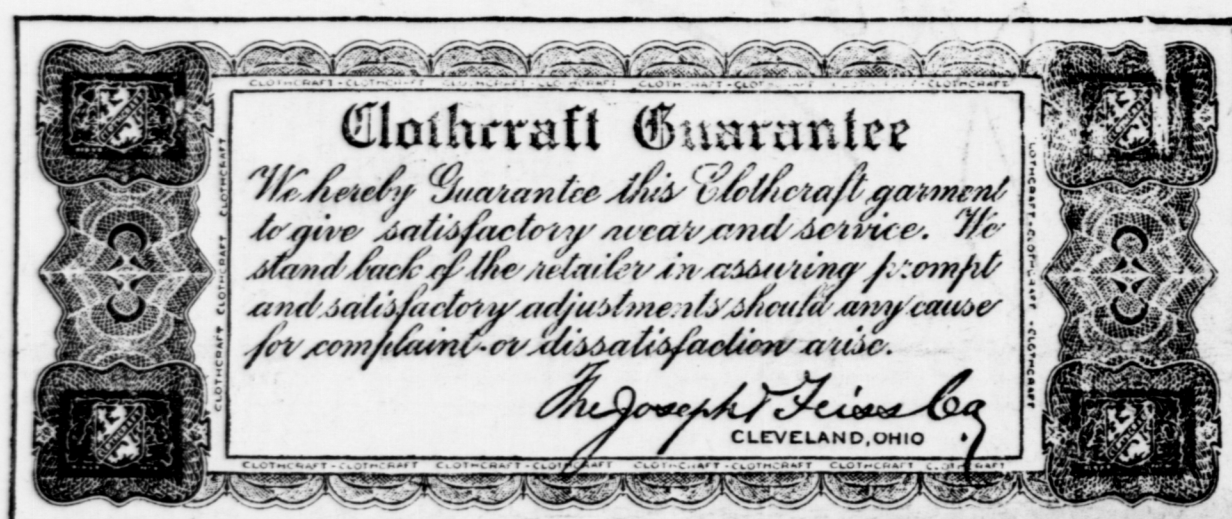 CLOTHCRAFT - CLOTHCRAFT CLOTHCRAFT - CLOTHCRAFT CLOTHCRAFT - CLOTHCRAFT CLOTHCRAFT
Clothcraft Guarantee
We hereby Guarantee this Clothcraft garment
to give satisfactory wear and service. We
stand back of the retailer in assuring prompt
and satisfactory adjustments should any cause
for complaint or dissatisfaction arise.
The Joseph & Feiss Co.
CLEVELAND, OHIO
CLOTHCRAFT CLOTHCRAFT CLOTHCRAFT
CLOTHCRAFT - CLOTHCRAFT - CLOTHCRAFT
CLOTHCRAFT - CLOTHCRAFT CLOTHCRAFT - CLOTHCRAFT CLOTHCRAFT - CLOTHCRAFT CLOTHCRAFT CLOTHCRAFT